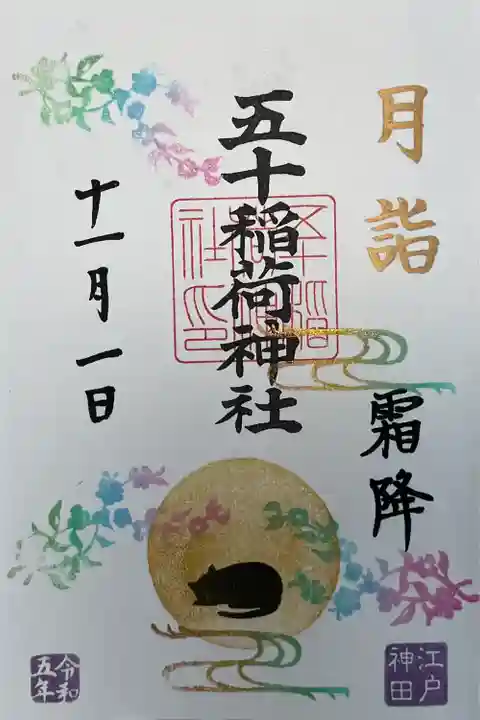 月詣
霜降
五十稲荷神社
十一月一日
江戸
神田
令和
五年